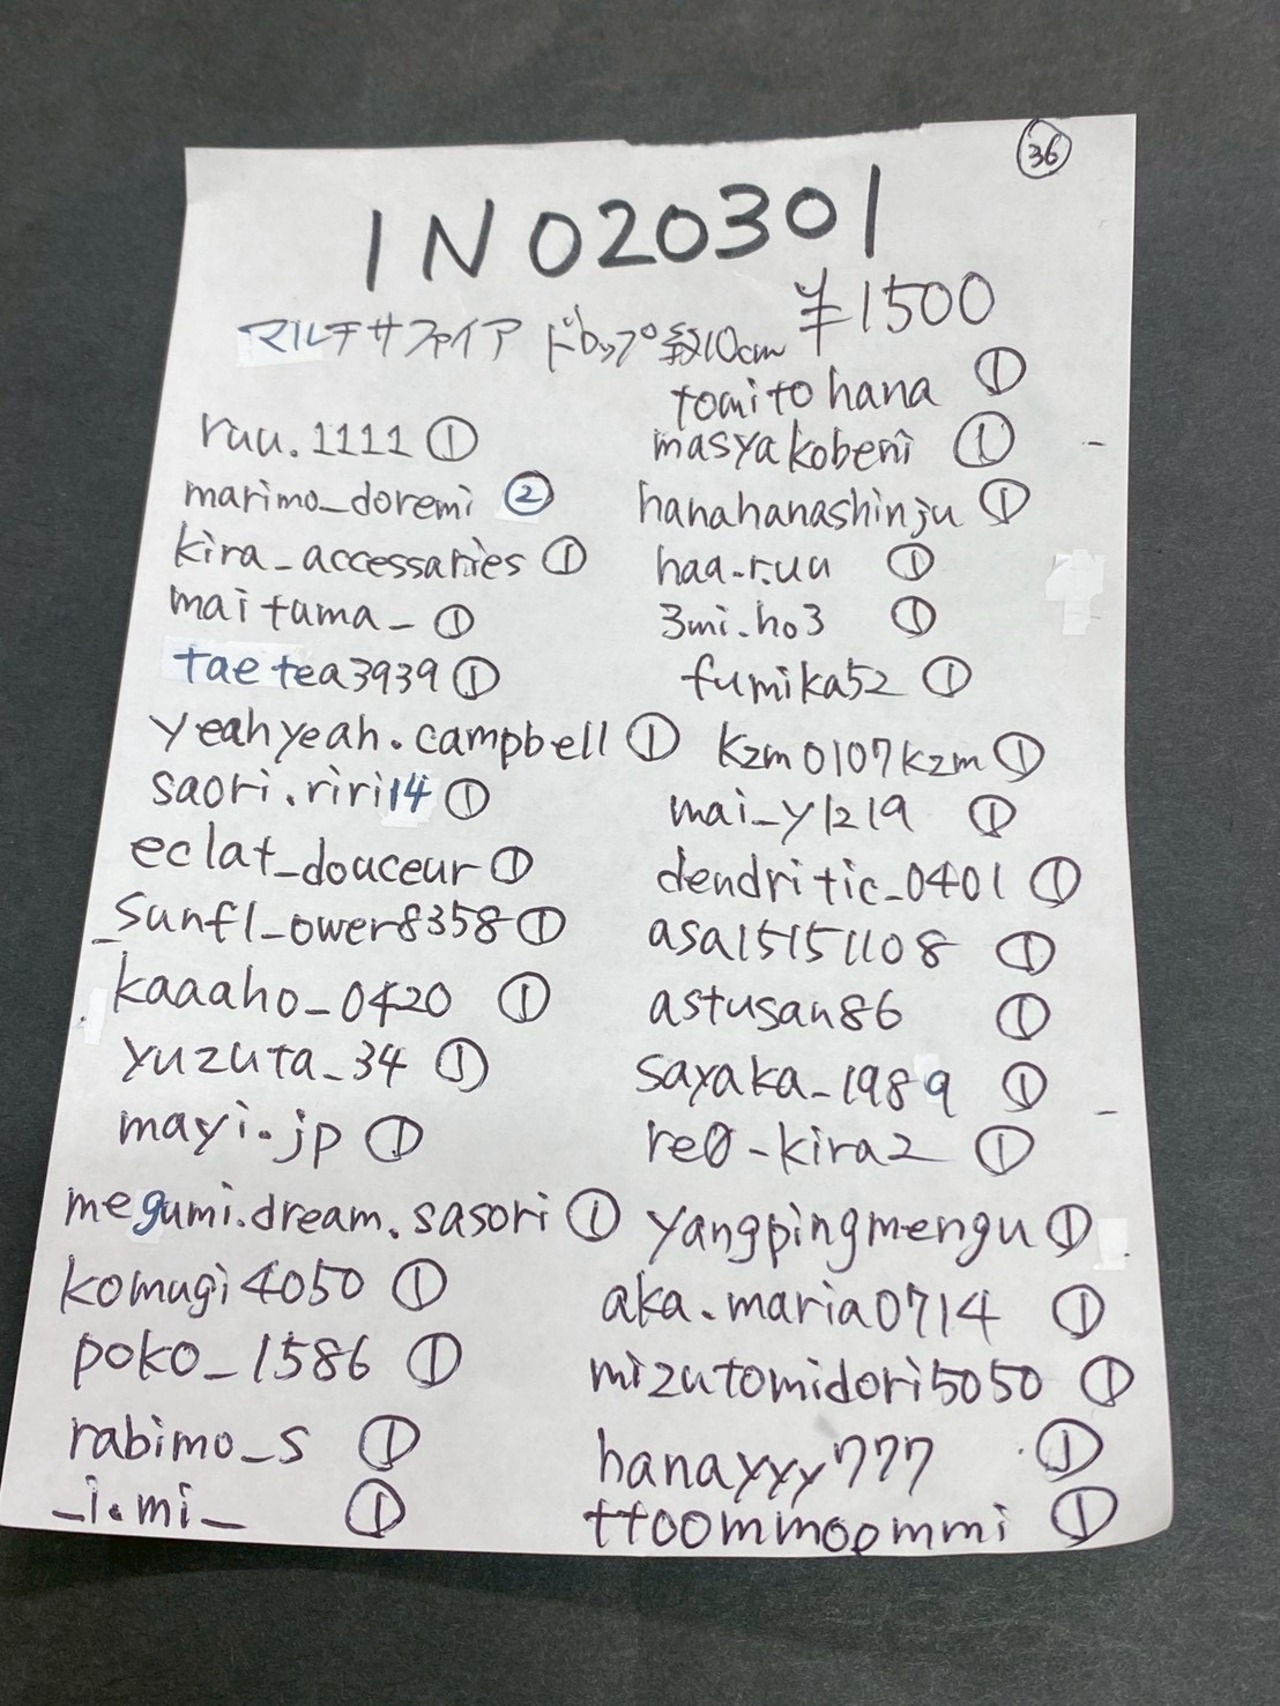 ㊱
IN020301
¥1500
マルチサファイア ドロップ 約10cm
ruu.1111 ①
marimo_doremi ②
kira_accessaries ①
maituma_ ①
taetea3939 ①
yeahyeah.campbell ①
saori.riri14 ①
eclat_douceur ①
_sunfl_ower8358 ①
kaaaho_0420 ①
yuzuta_34 ①
mayi.jp ①
megumi.dream.sasori ①
komugi4050 ①
poko_1586 ①
rabimo_s ①
_i.mi_ ①
tomitohana ①
masyakobeni ①
hanahanashinju ①
haa.r.uu ①
3mi.ho3 ①
fumika52 ①
kzm0107kzm ①
mai_y1219 ①
dendritic_0401 ①
asa15151108 ①
astusan86 ①
sayaka_1989 ①
re0_kira2 ①
yangpingmengu ①
aka.maria0714 ①
mizutomidori5050 ①
hanayyy777 ①
ttoommoommi ①